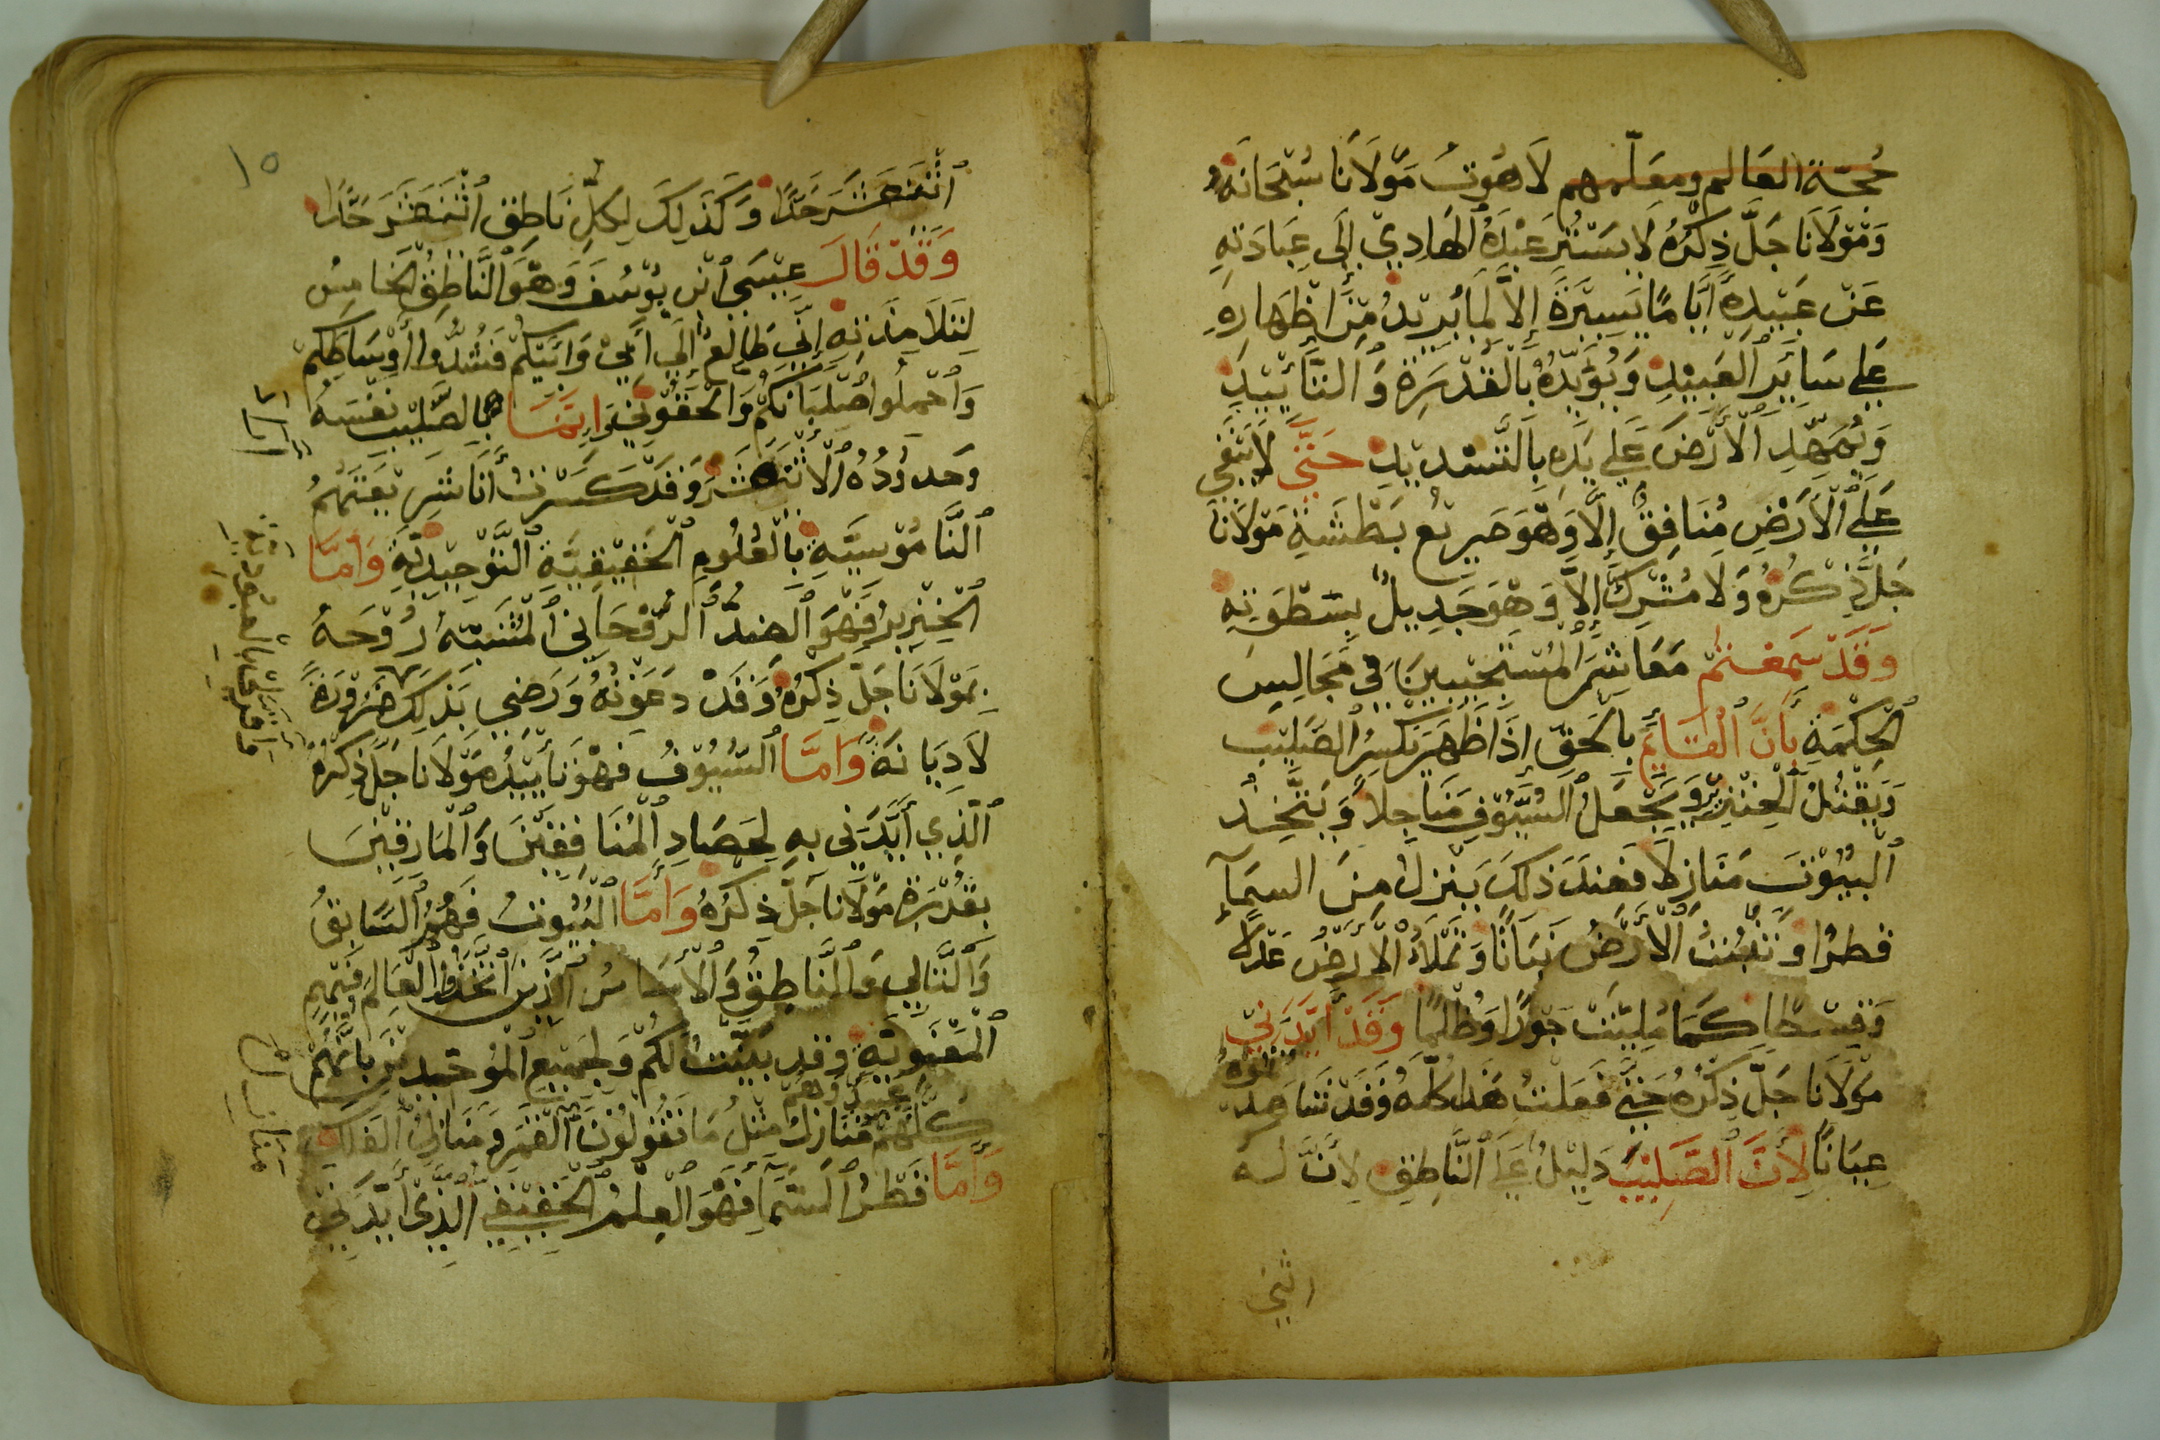 حُجَّة العَالم ومعَلّمهم لَاهُوتُ مَوْلَانَا سُبْحَانَهُ
وَمَوْلَانَا جَلَّ ذِكْرُهُ لَا يَسْتُرُ عَبْدَهُ ٱلهَادِيْ إِلَى عِبَادَتِهِ
عَنْ عَبِيْدِهِ أَيَّامًا يَسِيْرَةً إِلَّا لِمَا يُرِيْدُ مِنْ إِظْهَارِهِ
عَلَى سَايِرِ ٱلْعَبِيْدِ وَيُؤَيِّدُهُ بِالْقُدْرَةِ وَالتَّأْيِيْدِ
وَيُمَهِّدِ ٱلْأَرْضَ عَلَى يَدِهِ بِالتَّشْدِيْدِ حَتَّى لَا يَبْقَى
عَلَى ٱلْأَرْضِ مُنَافِقٌ إِلَّا وَهُوَ صَرِيْعُ بَطْشَةِ مَوْلَانَا
جَلَّ ذِكْرُهُ وَلَا مُشْرِكٌ إِلَّا وَهُوَ جَدِيلٌ بِسَطْوَتِهِ
وَقَدْ سَمِعْتُمْ مَعَاشِرَ ٱلْمُسْتَجِيْبِيْنَ فِي مَجَالِسِ
ٱلْحِكْمَةِ بِأَنَّ ٱلْقَايِمَ بِالْحَقِّ إِذَا ظَهَرَ يَكْسِرُ الصَّلِيْبَ
وَيَقْتُلُ ٱلْخِنْزِيْرَ وَيَجْعَلُ ٱلسُّيُوْفَ مَنَاجِلًا وَيَتَّخِذُ
ٱلْبُيُوْتَ مَنَازِلًا فَعِنْدَ ذَلِكَ يَنْزِلُ مِنَ السَمَآءِ
قَطْرًا وَتُنْبِتُ ٱلْأَرْضُ نَبَاتًا وَتُمْلَأُ ٱلْأَرْضُ عَدْلًا
وَقِسْطًا كَمَا مُلِيَتْ جَوْرًا وَظُلْمًا وَقَدْ أَيَّدَنِيْ
مَوْلَانَا جَلَّ ذِكْرُهُ حَتَّى فَعَلْتُ هَذَا كُلَّهُ وَقَدْ شَاهَدْتُمُوهُ
عِيَانًا لِأَنَّ ٱلصَّلِيْبَ دَلِيْلٌ عَلَى ٱلنَّاطِقِ لِأَنَّ لَهُ
اثني
١٥
ٱثْنَعَشَرَ حَدًّا وَكَذَلِكَ لِكُلِّ نَاطِقٍ ٱثْنَعَشَرَ حَدًّا
وَقَدْ قَالَ عِيْسَى ٱبْنُ يُوْسُفَ وَهُوَ ٱلنَّاطِقُ ٱلْخَامِسُ
لِتَلَامِذَتِهِ إِنِّي طَالِعٌ إِلَى أَبِيْ وَأَبِيْكُمْ فَشُدُّوا أَوْسَاطَكُمْ
وَٱحْمِلُوا صُلْبَانَكُمْ وَٱلْحَقُوْنِيْ وَإِنَّمَا بِالصَّلِيْبِ نَفْسَهُ
وَحدودُهُ ٱلْأَثْنَعَشَرَ وَقَدْ كَسَرْتُ أَنَا شَرِيْعَتَهُمُ
ٱلنَّامُوْسِيَّةِ بِالْعُلُوْمِ ٱلْحَقِيْقِيَّةِ ٱلتَّوْحِيْدِيَّةِ وَأَمَّا
ٱلْخِنْزِيْرُ فَهُوَ ٱلضِدُّ ٱلرُّوْحَانِي ٱلْمُشَبِّهُ رُوْحَهُ
بِمَوْلَانَا جَلَّ ذِكْرُهُ وَقَدْ دَعَوْتُهُ وَرَضِيَ بِذَلِكَ ضَرُوْرَةً
لَا دِيَانَةً وَأَمَّا ٱلسُّيُوْفُ فَهْوَ تَأْيِيْدُ مَوْلَانَا جَلَّ ذِكْرُهُ
ٱلَّذِي أَيَّدَنِي بِهِ لِحَصَادِ ٱلْمُنَافِقِيْنَ وَٱلْمَارِقِيْنَ
بِقُدْرَةِ مَوْلَانَا جَلَّ ذِكْرُهُ وَأَمَّا ٱلْبُيُوْتُ فَهُوَ ٱلسَّابِقُ
وَٱلتَّالِي وَٱلنَّاطِقُ وَٱلْأَسَاسُ ٱلَّذِيْنَ ٱتَّخَذُوا ٱلْعَالَمُ فِيْهِمِ
ٱلْمَعْنَوِيَّةِ وَقَد بَيَّنْتُ لَكُمْ وَلِجَمِيْعِ ٱلْمُوَحِّدِيْنَ بِأَنَّهُمْ
عَبِيْدٌ وَهُمْ
كُلَّهُمْ مَنَازِلُ مِثْلُ مَا تَقُوْلُوْنَ ٱلْقَمَرُ وَمَنَازِلُ ٱلْفَلَكِ
وَأَمَّا قَطْرُ ٱلسَّمَآءِ فَهُوَ ٱلْعِلْمُ ٱلْحَقِيْقِيْ ٱلَّذِيْ أَيَّدَنِيْ